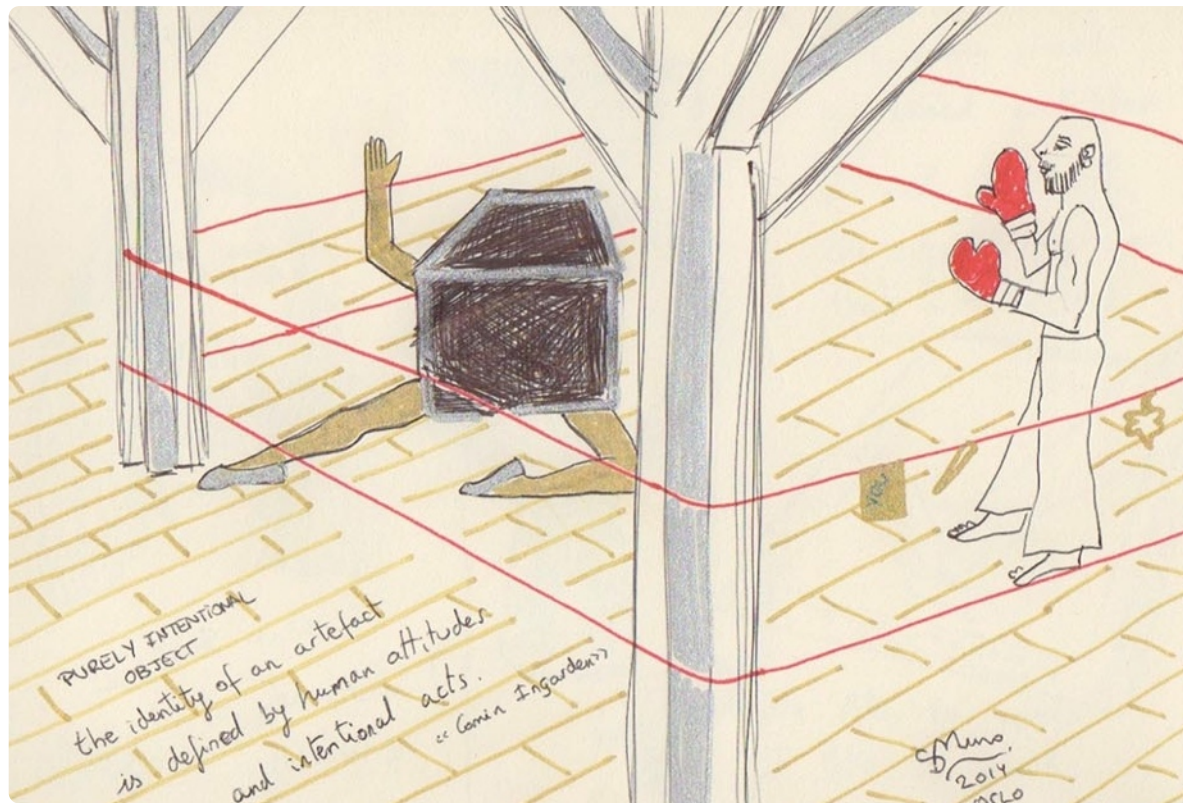 PURELY INTENTIONAL
OBJECT
the identity of an artefact
is defined by human attitudes
and intentional acts.
<<Comin Ingarden>>
YOU
2014